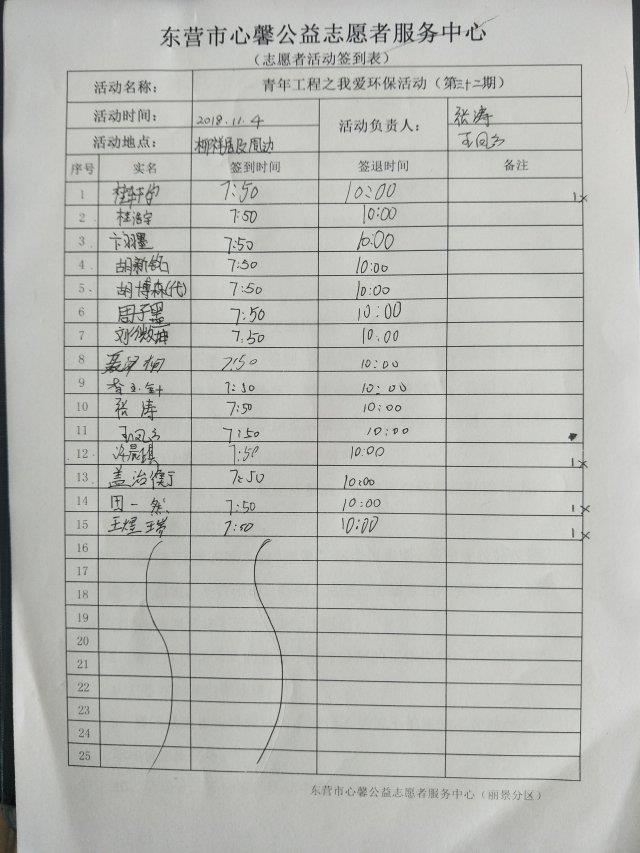 东营市心馨公益志愿者服务中心
（志愿者活动签到表）
活动名称： 青年工程之我爱环保活动（第三十二期）
活动时间： 2018.11.4 活动负责人： 张涛
活动地点： 柳祥居及周边 王凤
序号 实名 签到时间 签退时间 备注
1 7:50 10:00 1×
2 桂浩宇 7:50 10:00
3 卞羽墨 7:50 10:00
4 胡新铭 7:50 10:00
5 胡博森(代) 7:50 10:00
6 周子墨 7:50 10:00
7 刘微坤 7:50 10:00
8 7:50 10:00
9 李玉 7:50 10:00
10 张涛 7:50 10:00
11 王凤 7:50 10:00
12 许晨琪 7:50 10:00 1×
13 盖治 7:50 10:00
14 田一然 7:50 10:00 1×
15 王煜 7:50 10:00 1×
16
17
18
19
20
21
22
23
24
25
东营市心馨公益志愿者服务中心（丽景分区）